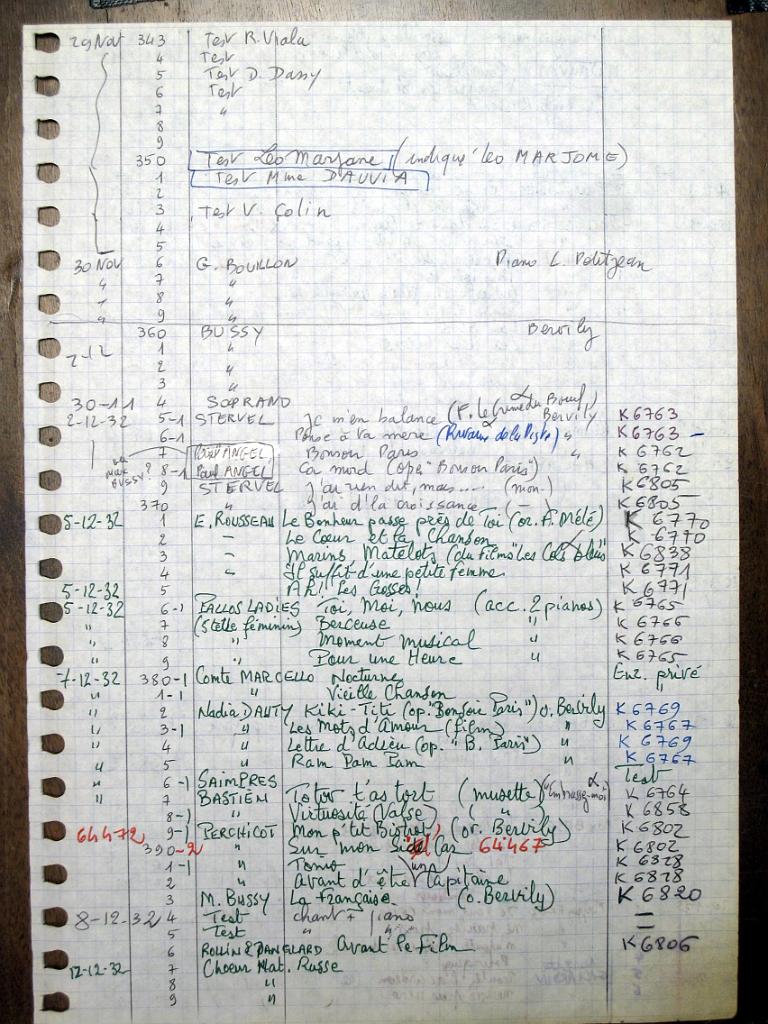 29 Nov 343 Test R. Viala
4 Test
5 Test D. Dassy
6 Test
7 "
8
9
350 Test Léo Marjane (indiqué "leo MARJOME)
1 Test Mme D'AUVIA
2
3 Test V. Colin
4
5
30 NOV 6 G. BOUILLON Piano L. Petitjean
" 7 "
" 8 "
" 9 "
360 BUSSY Bervily
2-12 1 "
2 "
3 "
30-11 4 SOPRANO
2-12-32 5-1 STERVEL Je m'en balance (F. le Crime du Boeuf) Bervily K6763
6-1 Pense à ta mère (Rivaux de la Piste) " K6763 -
7 Paul ANGEL Bonsoir Paris " K 6762
8-1 Paul ANGEL Ca mord (opé "Bonsoir Paris") K 6762
ou Max BUSSY?
9 STERVEL J'ai rien dit, mais.... (mon.) K6805
370 " J'ai d'la croissance (-) K6805
5-12-32 1 E. ROUSSEAU Le Bonheur passe près de Toi (or. F. Mélé) K 6770
2 - Le Coeur et la Chanson K 6770
3 - Marins, Matelots (du films "Les Cols bleus" K6838
4 " Il suffit d'une petite femme K6771
5-12-32 5 Ah! Les Gosses! K6771
5-12-32 6-1 PALLOS LADIES Toi, Moi, nous (acc. 2 pianos) K 6765
" 7 (Stelle féminin) Berceuse " K 6766
" 8 " Moment musical " K 6766
" 9 " Pour une Heure " K6765
7-12-32 380-1 Comte MARCELLO Nocturne Enr. privé
" 1-1 " Vieille Chanson "
" 2 Nadia DAUTY Kiki-Titi (op. "Bonsoir Paris") o. Bervily K6769
" 3-1 " Les Mots d'Amour (film) " K6767
" 4 " Lettre d'Adieu (op. "B. Paris") " K 6769
" 5 " Ram Pam Pam " K6767
" 6-1 SAIMPRES Test
" 7 BASTIEN Totor t'as tort (musette) ("Embrassez-moi K 6764
8-1 " Virtuosita (Valse) ( " K 6858
64472 9-1 PERCHICOT Mon p'tit Bistrot, (or. Bervily) K6802
390-2 " Sur mon Side Car 64467 K6802
1-1 " Tomo K 6828
2 " Avant d'être Capitaine K6828
3 M. BUSSY La française (o. Bervily) K 6820
8-12-32 4 Test chant + piano =
5 Test " "
6 ROLLIN & DANGLARD Avant le Film K6806
12-12-32 7 Choeur Nat. Russe
8 "
9 "